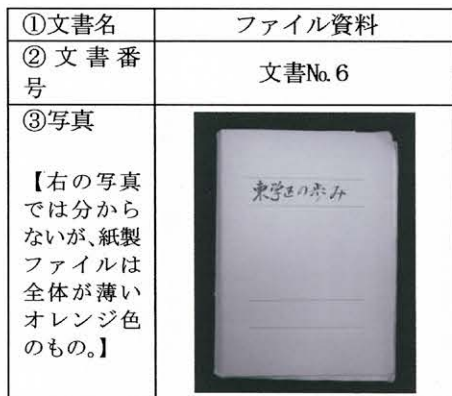 ①文書名
ファイル資料
②文書番
号
文書№6
③写真
【右の写真
では分から
ないが、紙製
ファイルは
全体が薄い
オレンジ色
のもの。】
東学区の歩み